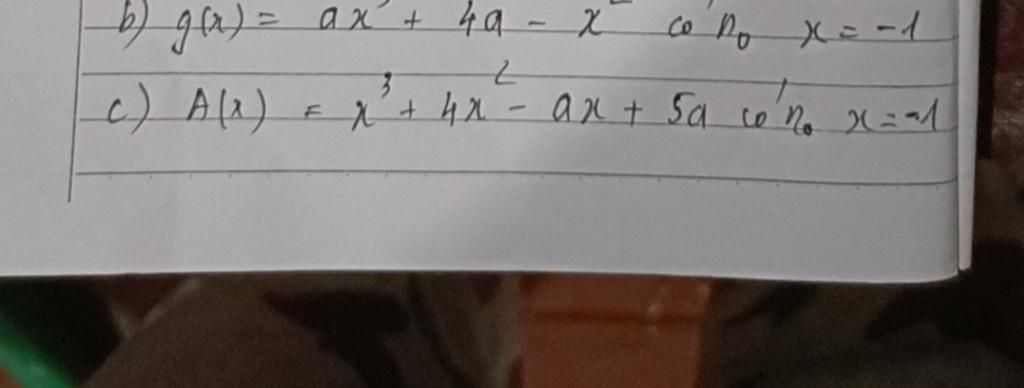 b) g(x) = ax + 4a - x² có n₀ x = -1
c) A(x) = x³ + 4x² - ax + 5a có n₀ x = -1